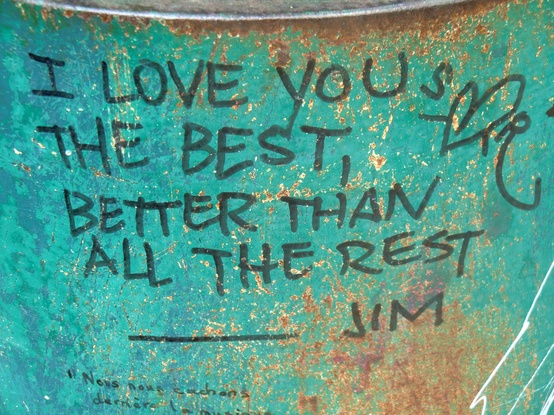 I LOVE YOU
THE BEST,
BETTER THAN
ALL THE REST
JIM
" Nous nous cachons
derrière la musique